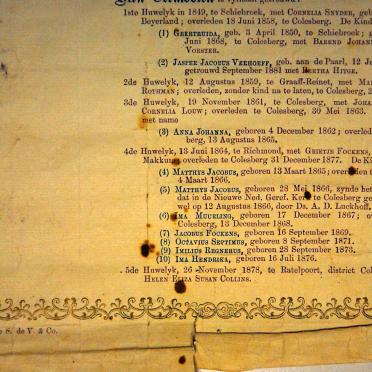 1ste Huwelyk in 1849, te Schiebroek, met CORNELIA SNYDER, geb
Beyerland; overleden 18 Juni 1858, te Colesberg. De Kind
(1) GEERTRUIDA, geb. 3 April 1850, te Schiebroek; g
Juni 1868, te Colesberg, met BAREND JOHANN
VORSTER.
(2) JASPER JACOBUS VERHOEFF, geb. aan de Paarl, 12 J
getrouwd September 1881 met BERTHA HITGE.
2de Huwelyk, 12 Augustus 1859, te Graaff-Reinet, met MA
ROTHMAN; overleden, zonder kind na te laten, te Colesberg, 2
3de Huwelyk, 19 November 1861, te Colesberg, met JOHA
CORNELIA LOUW; overleden te Colesberg, 30 Mei 1863.
met name
(3) ANNA JOHANNA, geboren 4 December 1862; overled
berg, 13 Augustus 1865.
4de Huwelyk, 13 Juni 1864, te Richmond, met GRIETJE FOCKENS,
Makkum, overleden te Colesberg 31 December 1877. De Ki
(4) MATTHYS JACOBUS, geboren 13 Maart 1865; overleden t
4 Maart 1866.
(5) MATTHYS JACOBUS, geboren 28 Mei 1866, zynde het
dat in de Nieuwe Ned. Geref. Kerk te Colesberg ge
wel op 12 Augustus 1866, door Ds. A. D. Luckhoff,
(6) IMA MUURLING, geboren 17 December 1867; ov
Colesberg, 13 December 1868.
(7) JACOBUS FOCKENS, geboren 16 September 1869.
(8) OCTAVIUS SEPTIMUS, geboren 8 September 1871.
(9) IMILIUS REGNERUS, geboren 28 September 1873.
(10) IMA HENDRIKA, geboren 16 Juli 1876.
5de Huwelyk, 26 November 1878, te Ratelpoort, district Col
HELEN ELIZA SUSAN COLLINS.
S. de V. & Co.